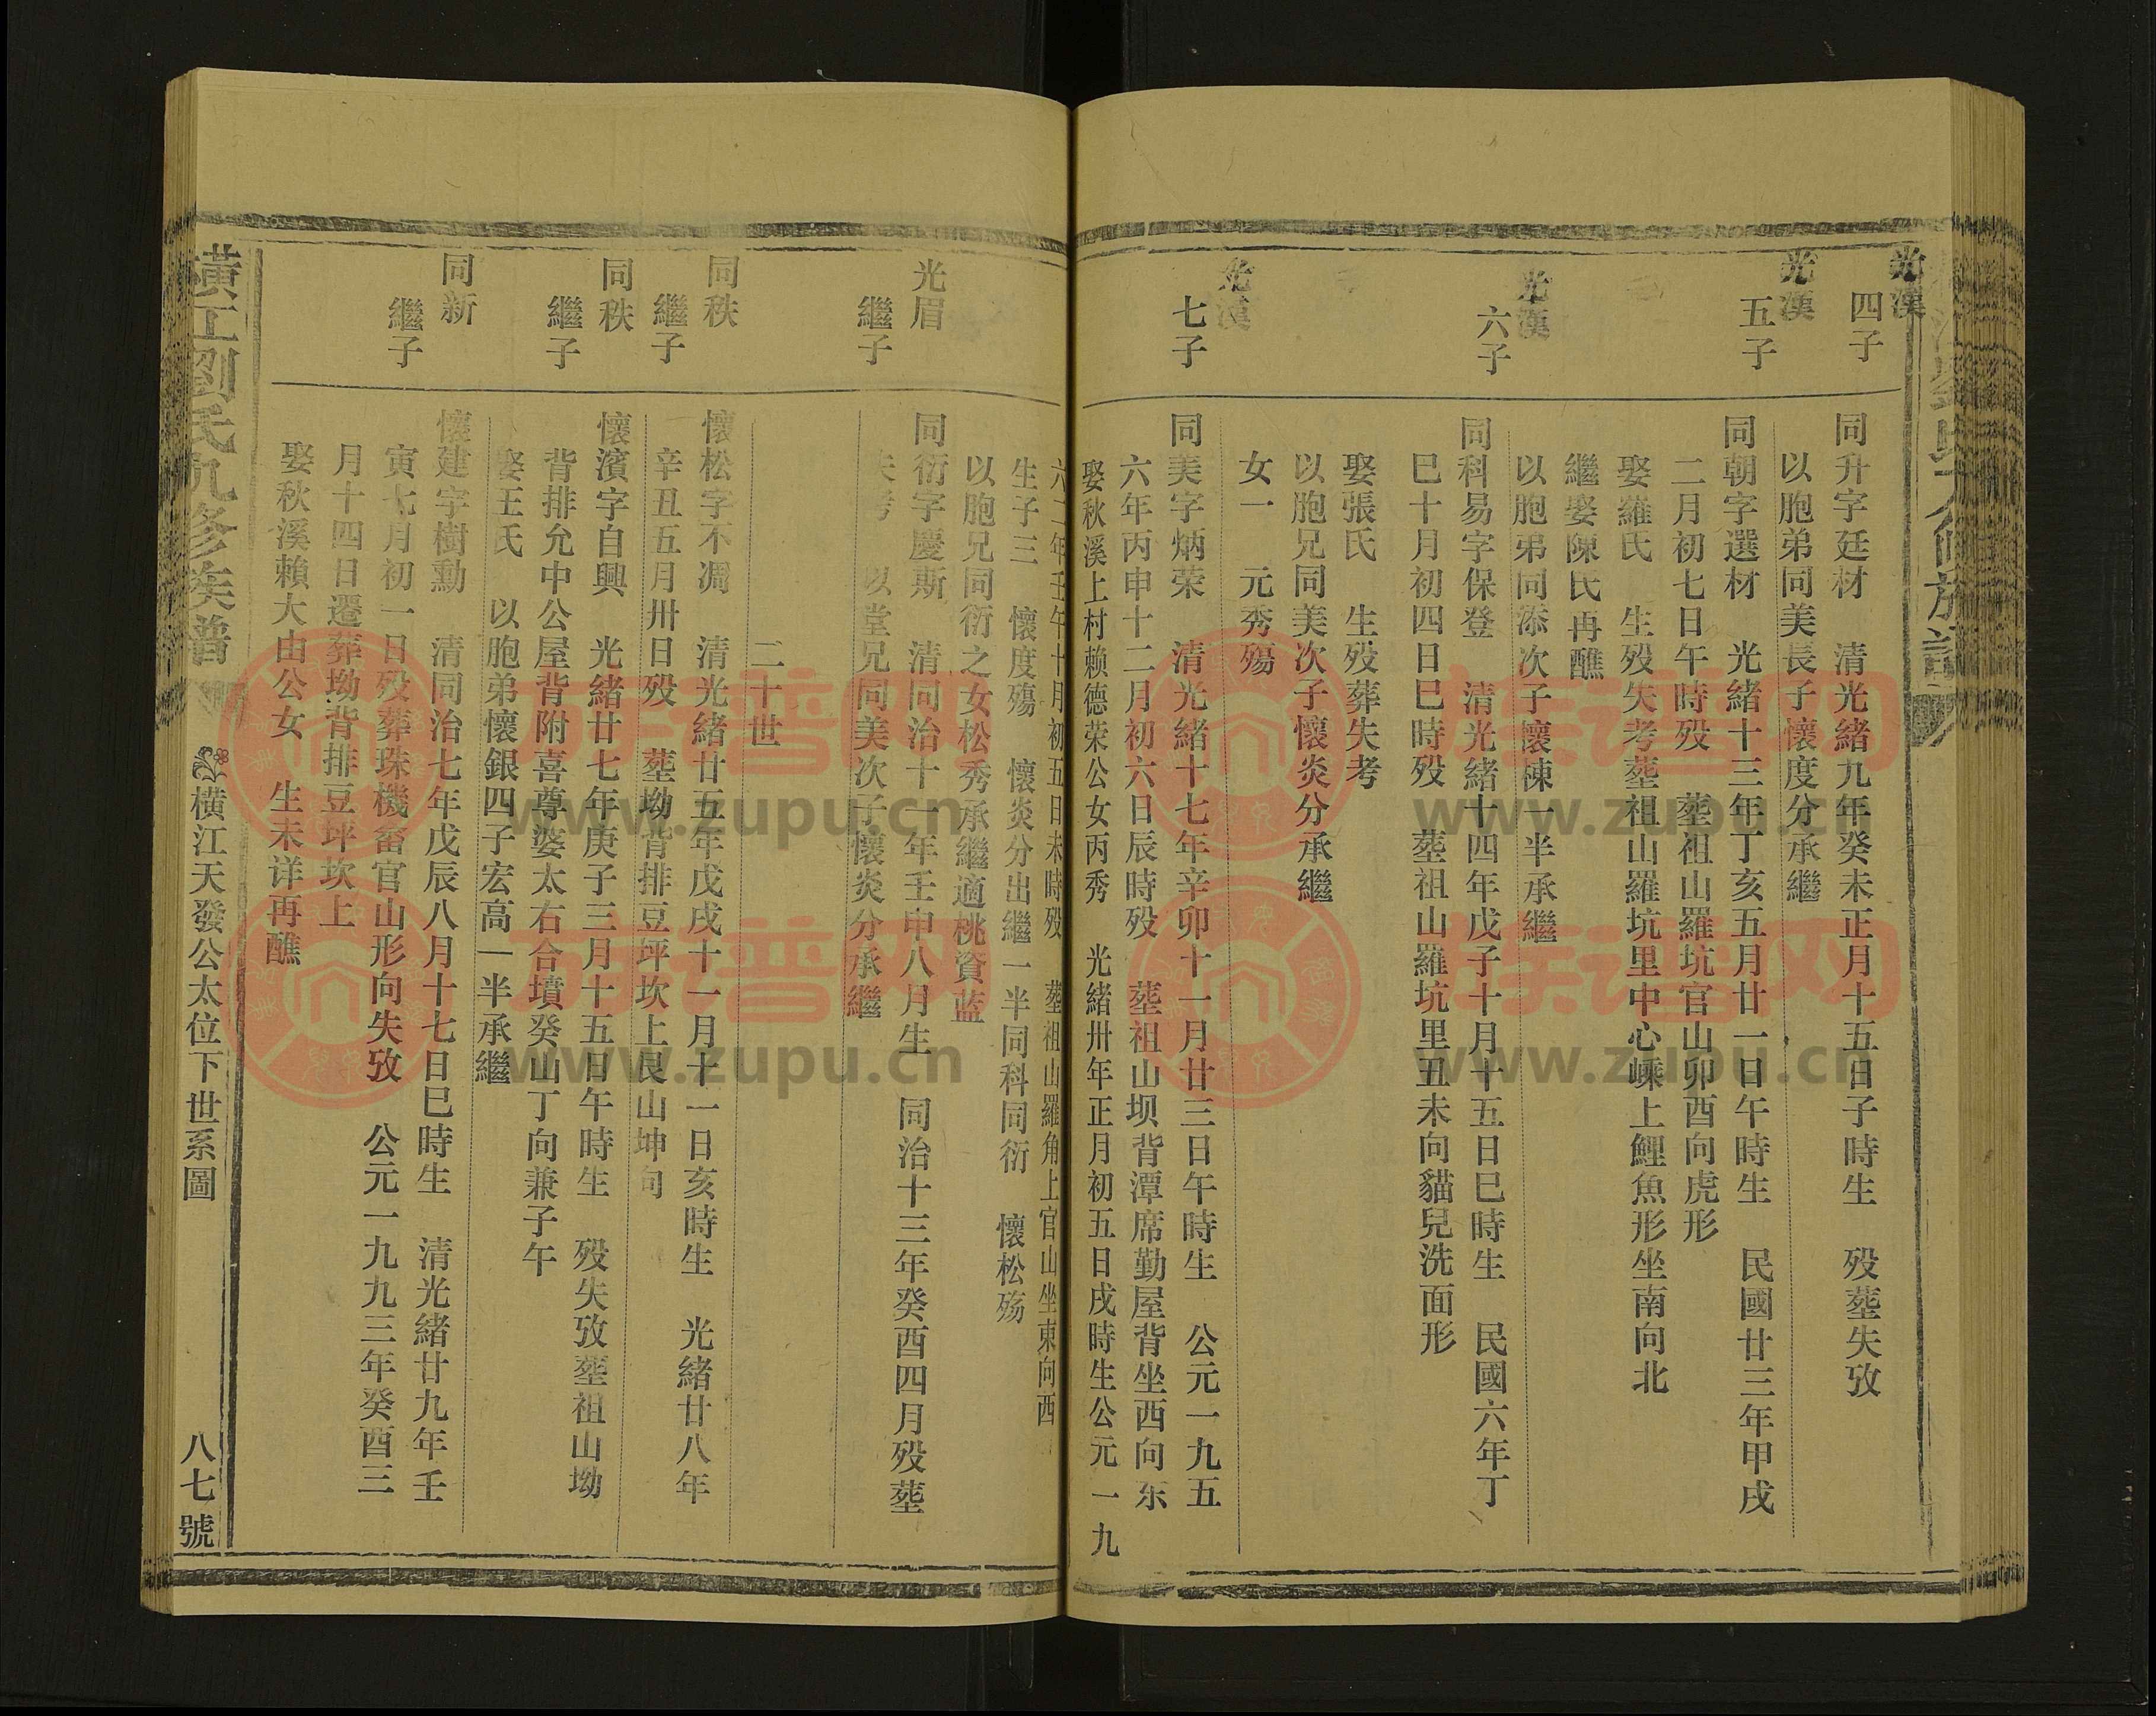 光漢
四子
同升字廷材　清光緒九年癸未正月十五日子時生　殁塟失攷
以胞弟同美長子懷度分承繼
光漢
五子
同朝字選材　光緒十三年丁亥五月廿一日午時生　民國廿三年甲戌
二月初七日午時殁　塟祖山羅坑官山卯酉向虎形
娶羅氏　生殁失考塟祖山羅坑里中心嵊上鯉魚形坐南向北
繼娶陳氏再醮
以胞弟同添次子懷棟一半承繼
光漢
六子
同科易字保登　清光緒十四年戊子十月十五日巳時生　民國六年丁
巳十月初四日巳時殁　塟祖山羅坑里丑未向貓兒洗面形
娶張氏　生殁葬失考
以胞兄同美次子懷炎分承繼
女一　元秀殤
光漢
七子
同美字炳荣　清光緒十七年辛卯十一月廿三日午時生　公元一九五
六年丙申十二月初六日辰時殁　塟祖山坝背潭席勤屋背坐西向东
娶秋溪上村赖德荣公女丙秀　光緒卅年正月初五日戌時生公元一九
六二年壬午十月初五日未時殁　塟祖山羅角上官山坐東向西
生子三　懷度殤　懷炎分出繼一半同科同衍　懷松殇
以胞兄同衍之女松秀承繼適桃資蓝
光眉
繼子
同衍字慶斯　清同治十一年壬申八月生　同治十三年癸酉四月殁塟
失考　以堂兄同美次子懷炎分承繼
二十世
同秩
繼子
懷松字不凋　清光緒廿五年戊戌十一月十一日亥時生　光緒廿八年
辛丑五月卅日殁　塟坳背排豆坪坎上艮山坤向
同秩
繼子
懷濱字自興　光緒廿七年庚子三月十五日午時生　殁失攷塟祖山坳
背排允中公屋背附喜尊婆太右合墳癸山丁向兼子午
娶王氏　以胞弟懷銀四子宏高一半承繼
同新
繼子
懷建字樹勳　清同治七年戊辰八月十七日巳時生　清光緒廿九年壬
寅七月初一日殁葬珠機畲官山形向失攷　公元一九九三年癸酉三
月十四日遷葬坳背排豆坪坎上
娶秋溪賴大由公女　生未详再醮
橫江劉氏九修族譜
橫江天發公太位下世系圖
八七號
族谱网
www.zupu.cn
族谱网
www.zupu.cn
族谱网
www.zupu.cn
族谱网
www.zupu.cn